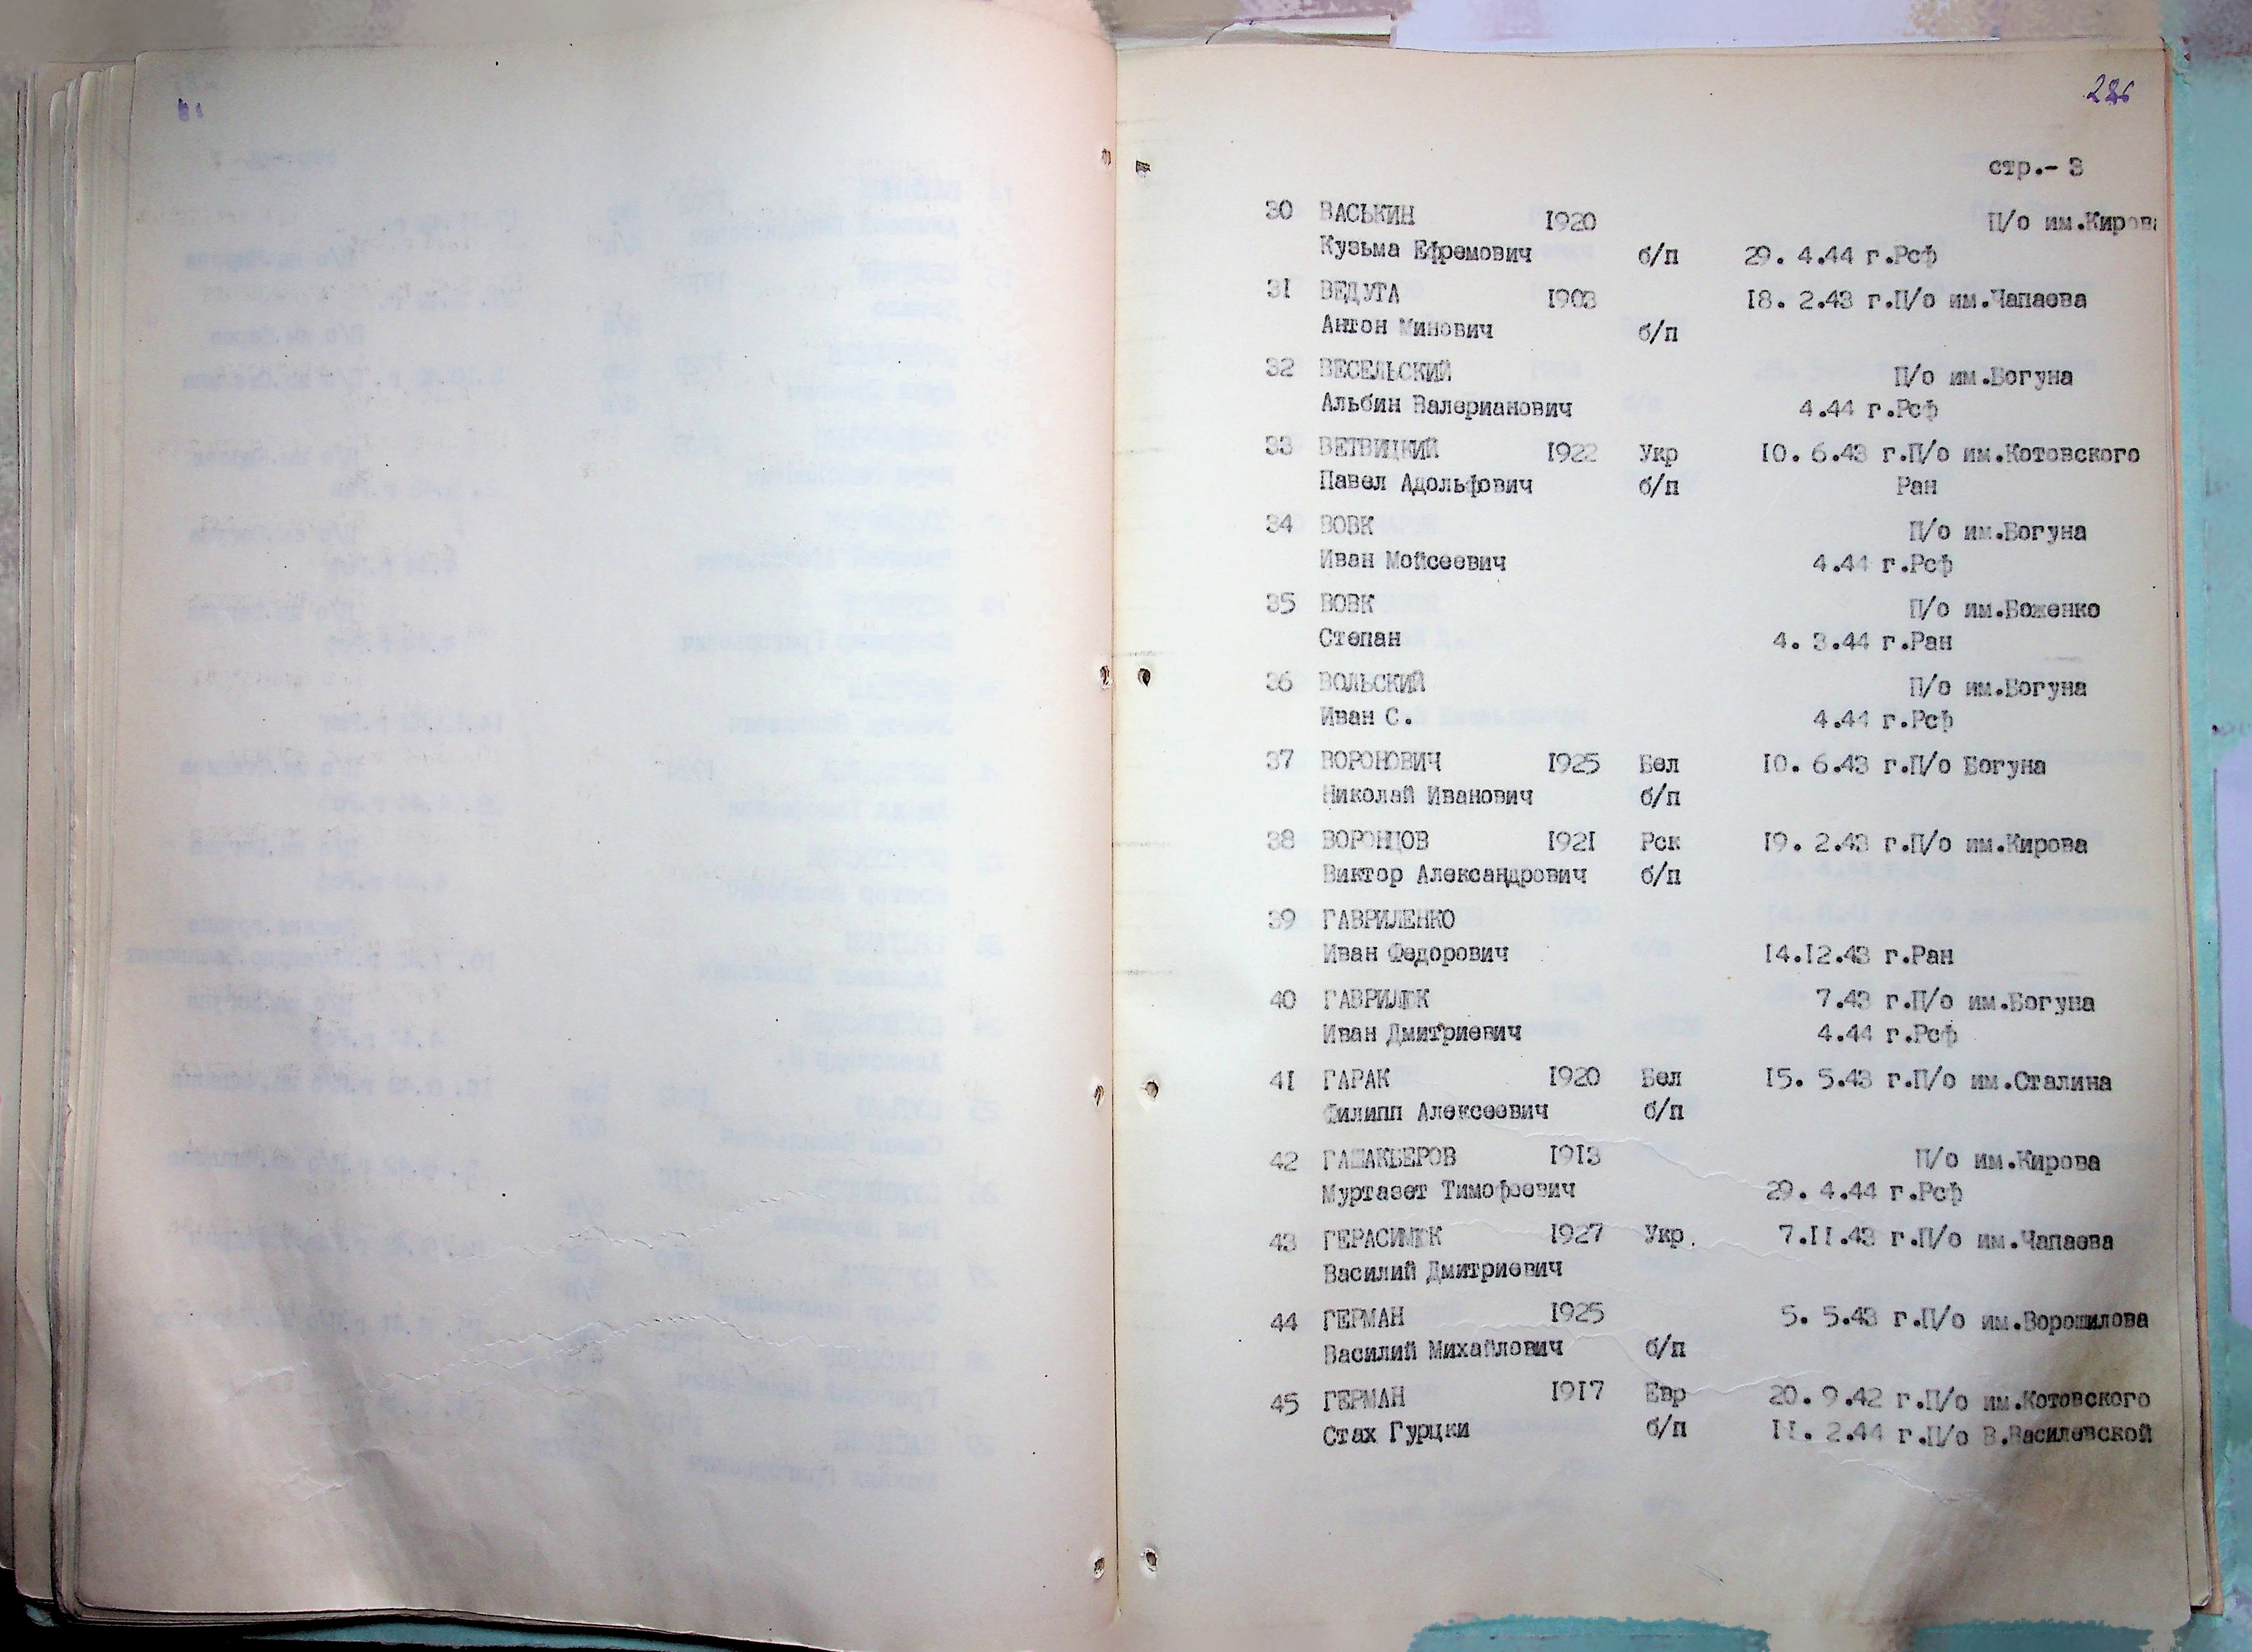 стр.- 3
30 ВАСЬКИН 1920 П/о им.Кирова
Кузьма Ефремович б/п 29. 4.44 г.Рсф
31 ВЕДУТА 1903 18. 2.43 г.П/о им.Чапаева
Антон Минович б/п
32 ВЕСЕЛЬСКИЙ П/о им.Богуна
Альбин Валерианович 4.44 г.Рсф
33 ВЕТВИЦКИЙ 1922 Укр 10. 6.43 г.П/о им.Котовского
Павел Адольфович б/п Ран
34 ВОВК П/о им.Богуна
Иван Мойсеевич 4.44 г.Рсф
35 ВОВК П/о им.Боженко
Степан 4. 3.44 г.Ран
36 ВОЛЬСКИЙ П/о им.Богуна
Иван С. 4.44 г.Рсф
37 ВОРОНОВИЧ 1925 Бел 10. 6.43 г.П/о Богуна
Николай Иванович б/п
38 ВОРОНЦОВ 1921 Рск 19. 2.43 г.П/о им.Кирова
Виктор Александрович б/п
39 ГАВРИЛЕНКО
Иван Федорович 14.12.43 г.Ран
40 ГАВРИЛЮК 7.43 г.П/о им.Богуна
Иван Дмитриевич 4.44 г.Рсф
41 ГАРАК 1920 Бел 15. 5.43 г.П/о им.Сталина
Филипп Алексеевич б/п
42 ГАШАКБЕРОВ 1913 П/о им.Кирова
Муртазет Тимофеевич 29. 4.44 г.Рсф
43 ГЕРАСИМЮК 1927 Укр. 7.11.43 г.П/о им.Чапаева
Василий Дмитриевич
44 ГЕРМАН 1925 5. 5.43 г.П/о им.Ворошилова
Василий Михайлович б/п
45 ГЕРМАН 1917 Евр 20. 9.42 г.П/о им.Котовского
Стах Гурцки б/п 11. 2.44 г.П/о В.Василевской